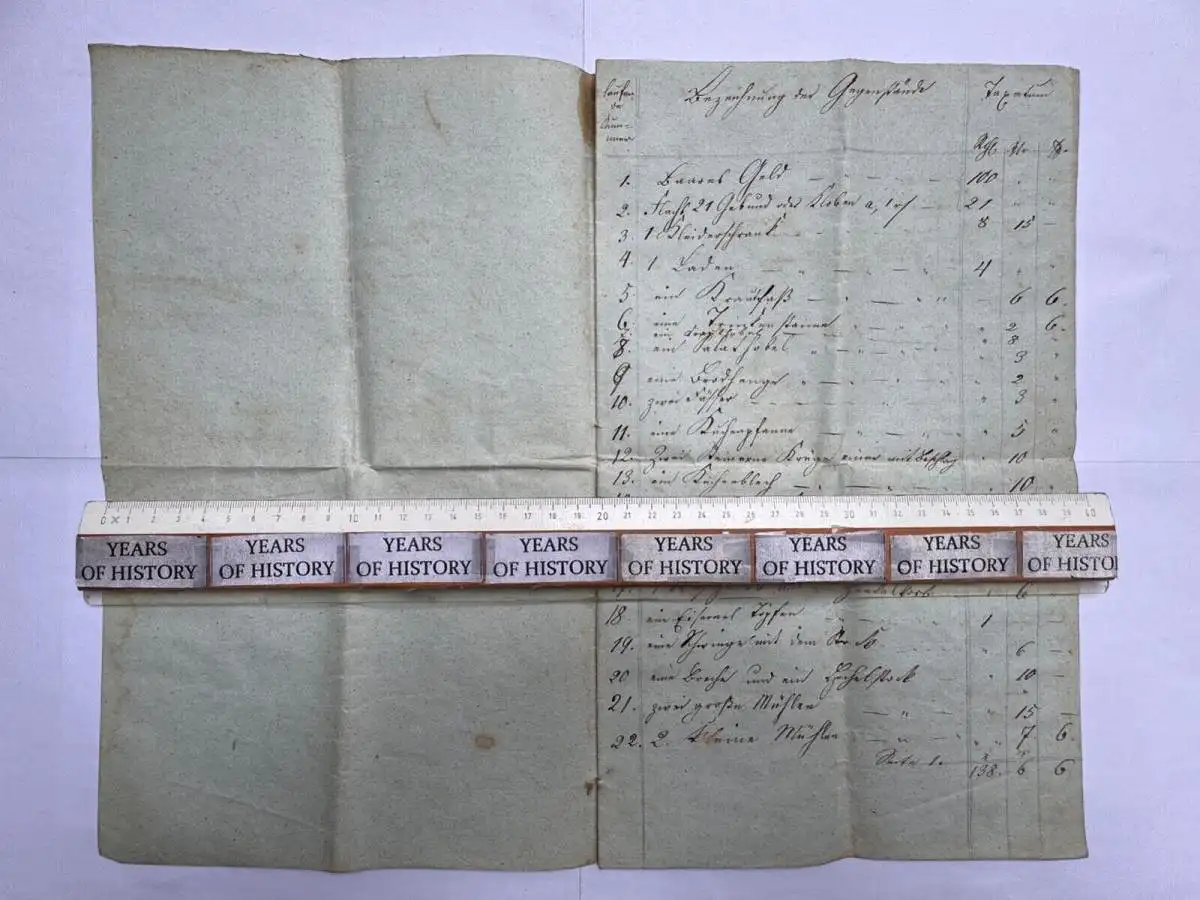 laufen-
de
Num-
mer
Bezeichnung der Gegenstände
Taxatum
Rthl.
1. Baares Geld — 100 " "
2. Flachs 21 Gebund oder Kloben a, 1 rf — 21 " "
3. 1 Kleiderschrank 8 15 —
4. 1 Laden — " — " — " 4 " "
5. ein Krautfaß — " — " " 6 6.
6. eine " " 2 6.
7. ein " 8 "
8. ein Salathobel " — " " 3 "
9 eine Brodhenge " — " " 2 "
10. zwei Fässer — " 3 "
11. eine Kuchenpfanne — " — " " 5 "
12. Zwei steinerne Krüge einer mit Beschlag " 10 "
13. ein Kuchenblech — " " 10 "
0 1 2 3 4 5 6 7 8 9 10 11 12 13 14 15 16 17 18 19 20 21 22 23 24 25 26 27 28 29 30 31 32 33 34 35 36 37 38 39 40
YEARS OF HISTORY YEARS OF HISTORY YEARS OF HISTORY YEARS OF HISTORY YEARS OF HISTORY YEARS OF HISTORY YEARS OF HISTORY YEARS OF HISTO
17. 6
18 ein Eisernes Töpfen 1
19. eine Schwinge mit dem 6 —
20 eine Breche und ein Hechelstock — " 10 —
21. zwei große Mühlen — " — " 15 —
22. 2. Kleine Mühlen — " — " " 7 6.
Seite 1. 138. 6 6